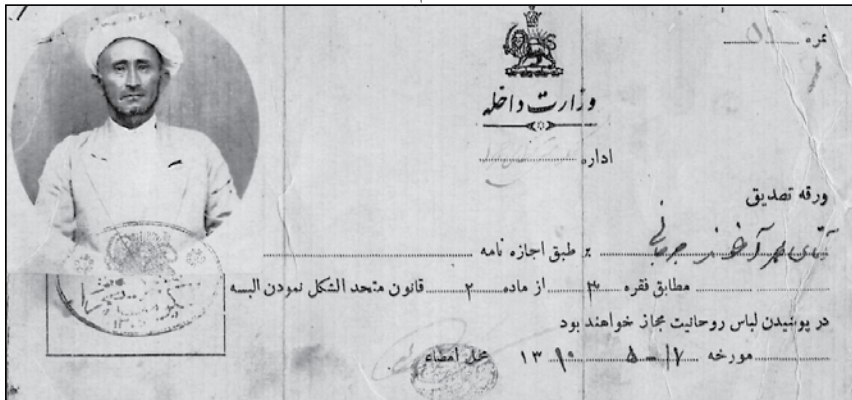 نمره
وزارت داخله
اداره
ورقه تصدیق
آقای آخوند جرجانی بر طبق اجازه نامه
مطابق فقره ۳ از ماده ۲ قانون متحد الشکل نمودن البسه
در پوشیدن لباس روحانیت مجاز خواهند بود
مورخه ۱۷ - ۵ ۱۳۱۰ محل امضاء